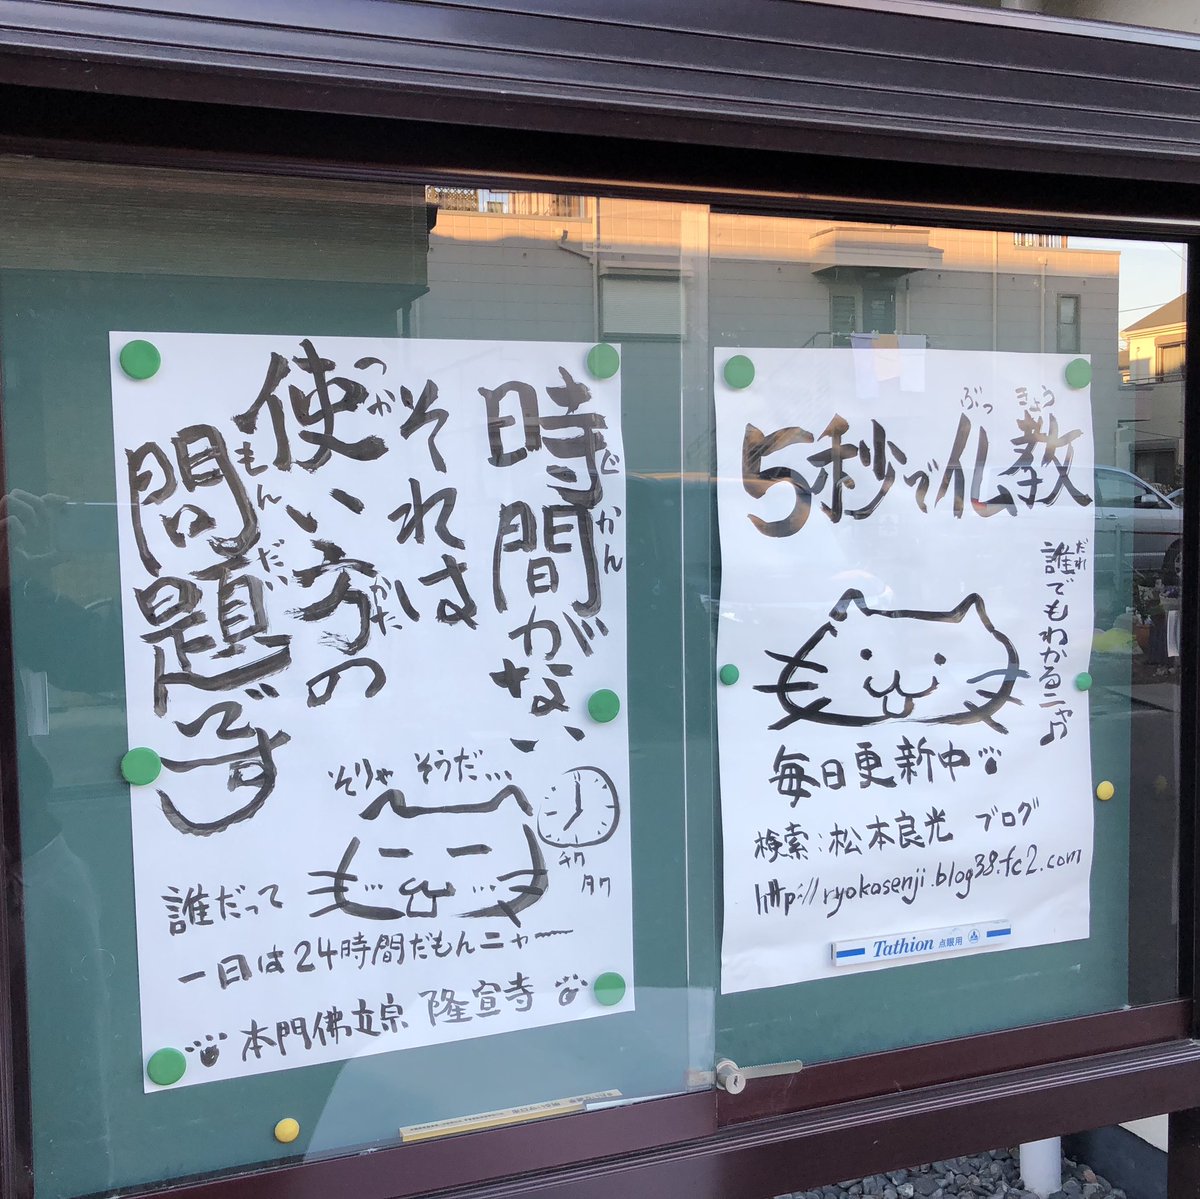 時間がない
じかん
それは
使い方の
つか かた
問題です
もんだい
そりゃ そうだ...
チク
タク
誰だって
一日は24時間だもんニャー
本門佛立宗 隆宣寺
5秒で仏教
ぶっきょう
誰でもわかるニャ♪
だれ
毎日更新中
検索:松本良光 ブログ
http://ryokosenji.blog38.fc2.com
Tathion 点眼用